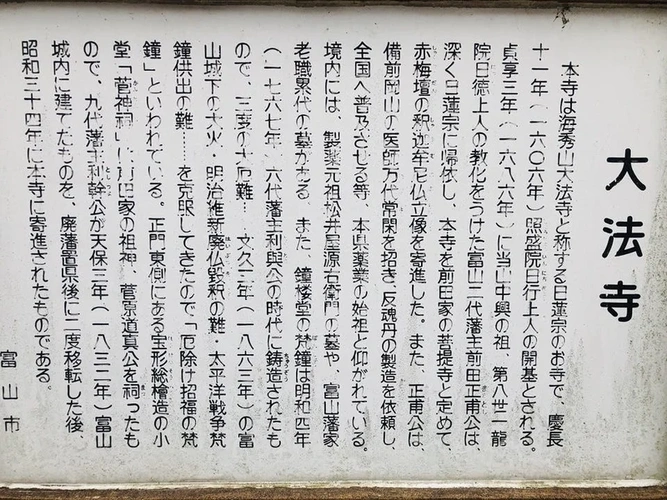 大法寺
本寺は海秀山大法寺と称する日蓮宗のお寺で、慶長
十一年(一六〇六年)照盛院日行上人の開基とされる。
貞享三年(一六八六年)に当山中興の祖、第八世一龍
院日徳上人の教化をうけた富山二代藩主前田正甫公は、
深く日蓮宗に帰依し、本寺を前田家の菩提寺と定めて、
赤梅壇の釈迦牟尼仏立像を寄進した。また、正甫公は、
備前岡山の医師万代常閑を招き、反魂丹の製造を依頼し、
全国へ普及させる等、本県薬業の始祖と仰がれている。
境内には、製薬元祖松井屋源右衛門の墓や、富山藩家
老職累代の墓がある。また、鐘楼堂の梵鐘は明和四年
(一七六七年)六代藩主利與公の時代に鋳造されたも
ので、三度の大厄難……文久三年(一八六三年)の富
山城下の大火・明治維新廃仏毀釈の難・太平洋戦争梵
鐘供出の難……を克服してきたので「厄除け招福の梵
鐘」といわれている。正門東側にある宝形総檜造の小
堂「菅神祠」は前田家の祖神、菅原道真公を祠ったも
ので、九代藩主利幹公が天保三年(一八三二年)富山
城内に建てたものを、廃藩置県後に二度移転した後、
昭和三十四年に本寺に寄進されたものである。
富山市